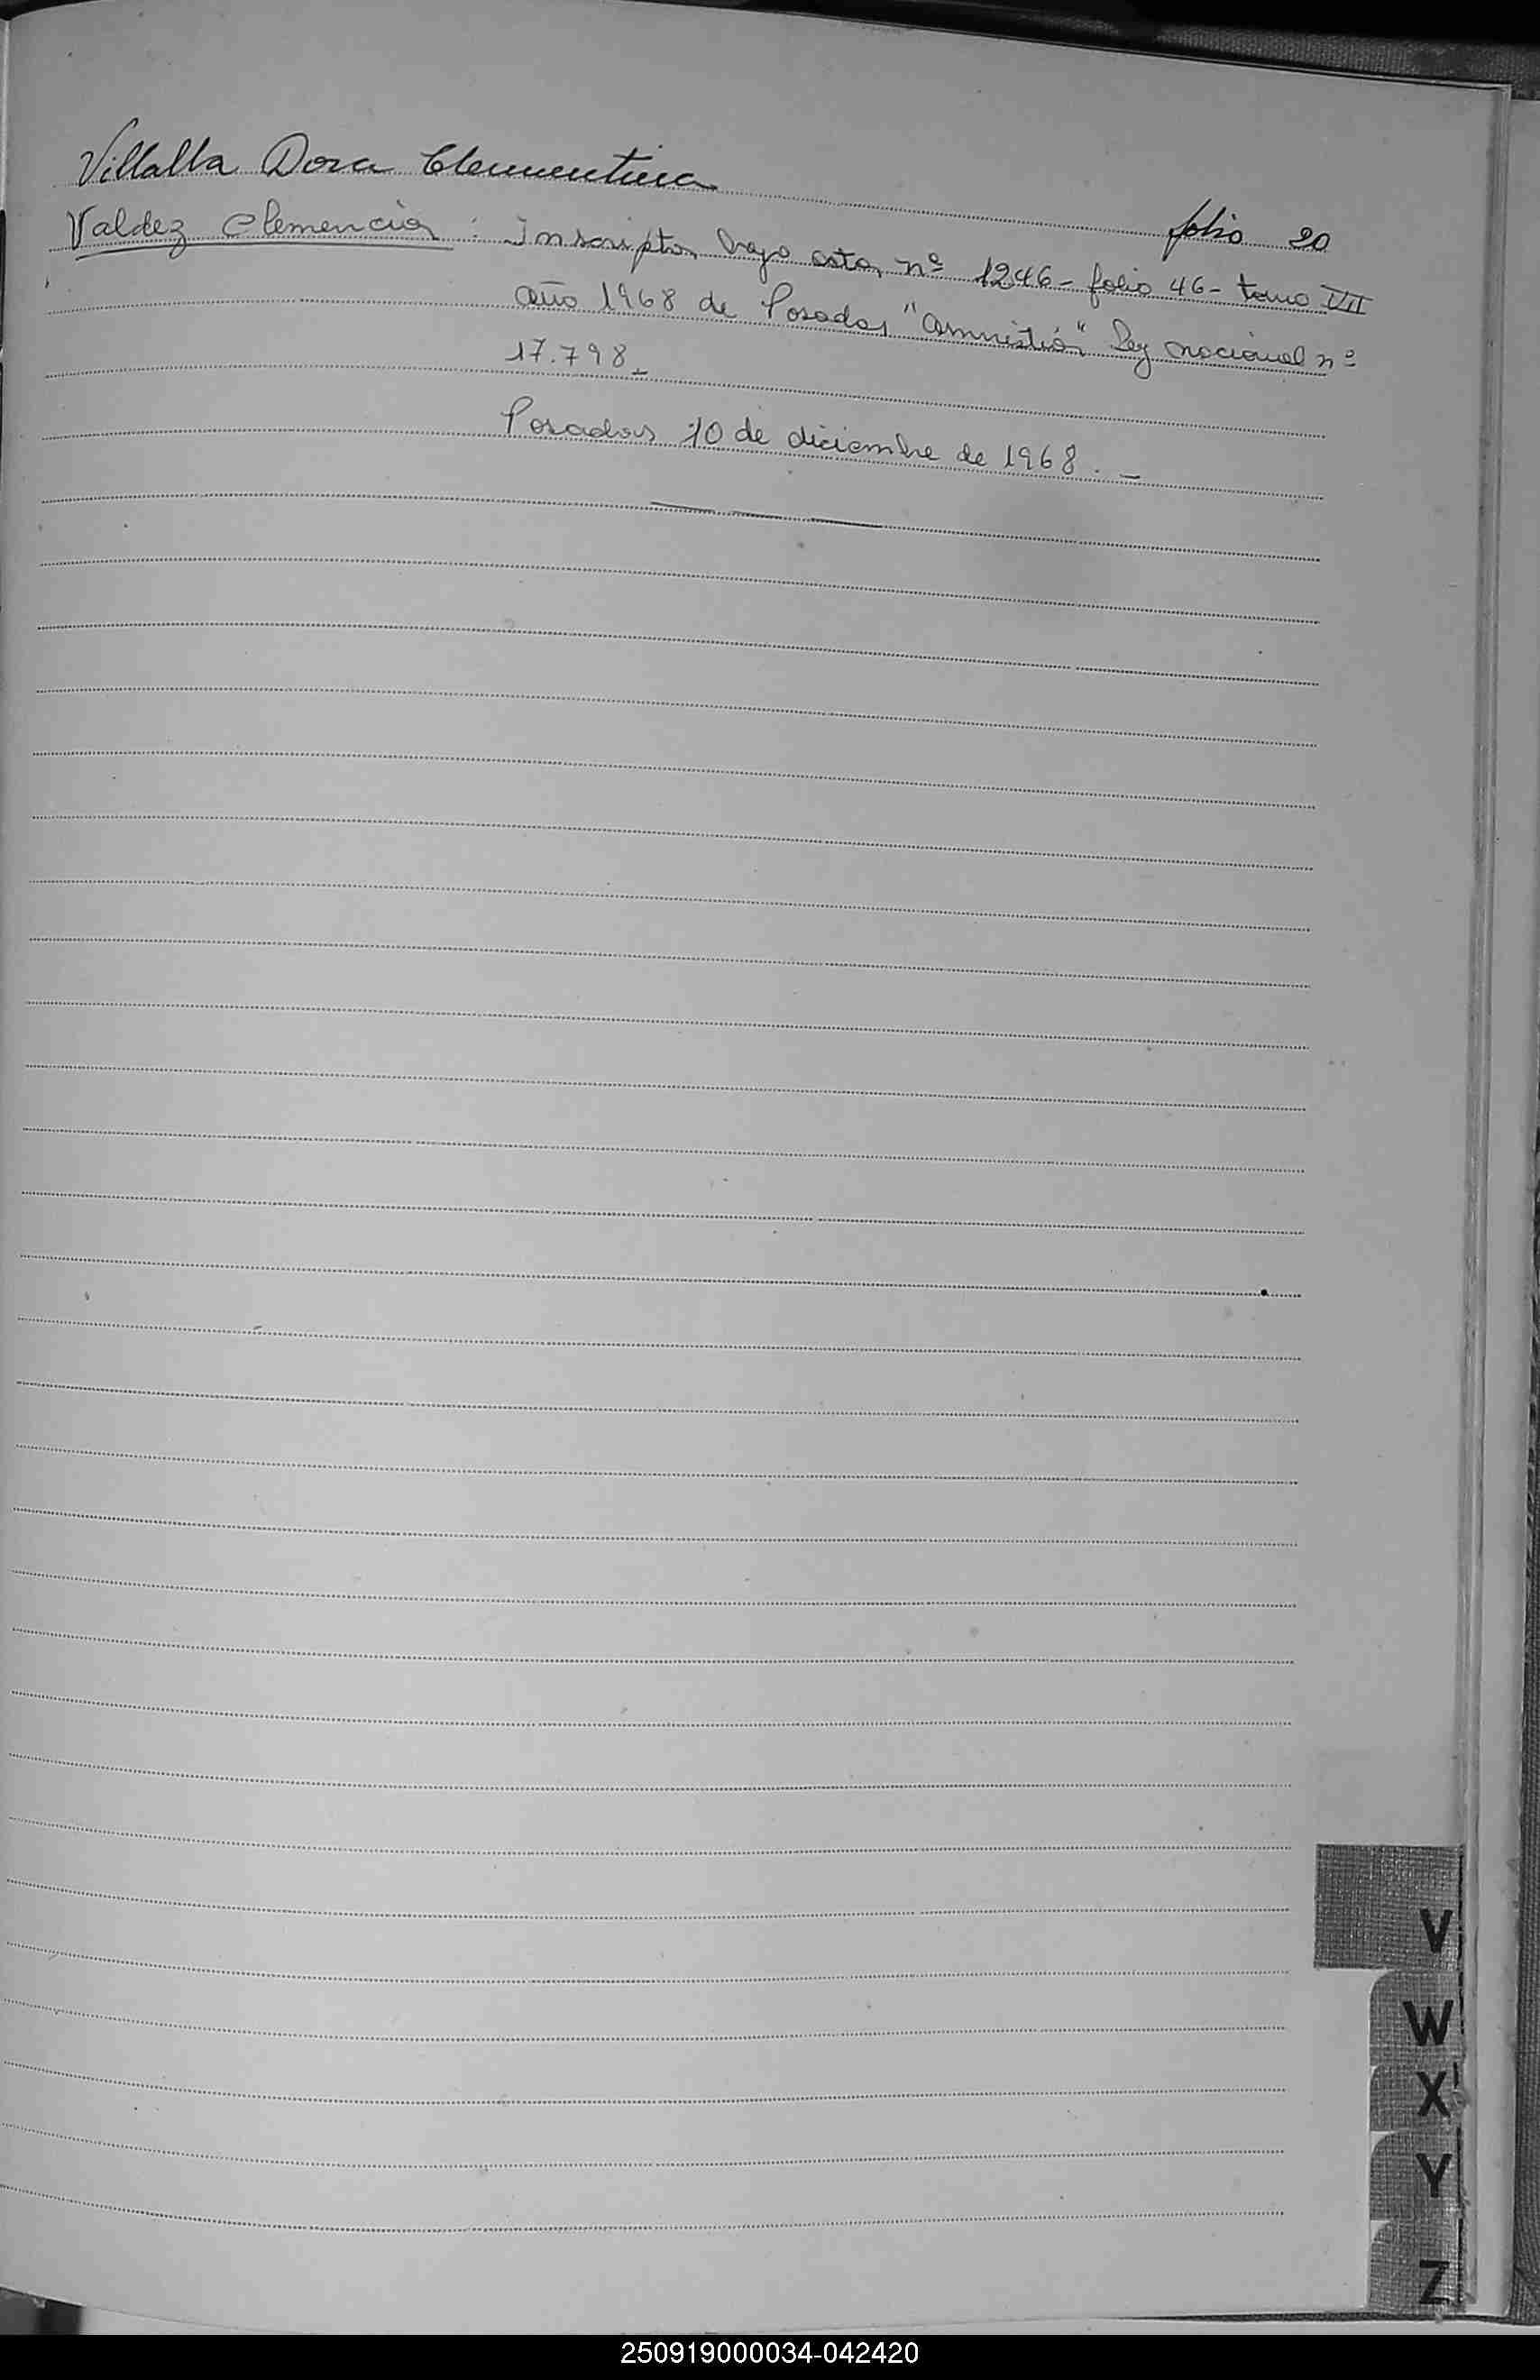 Villalba Dora Clementina folio 20
Valdez Clemencia : Inscripta bajo acta nº 1246 - folio 46 - tomo VII
año 1968 de Posadas "amnistía" Ley nacional nº
17.798_
Posadas 10 de diciembre de 1968. _
V
W
X
Y
Z
250919000034-042420